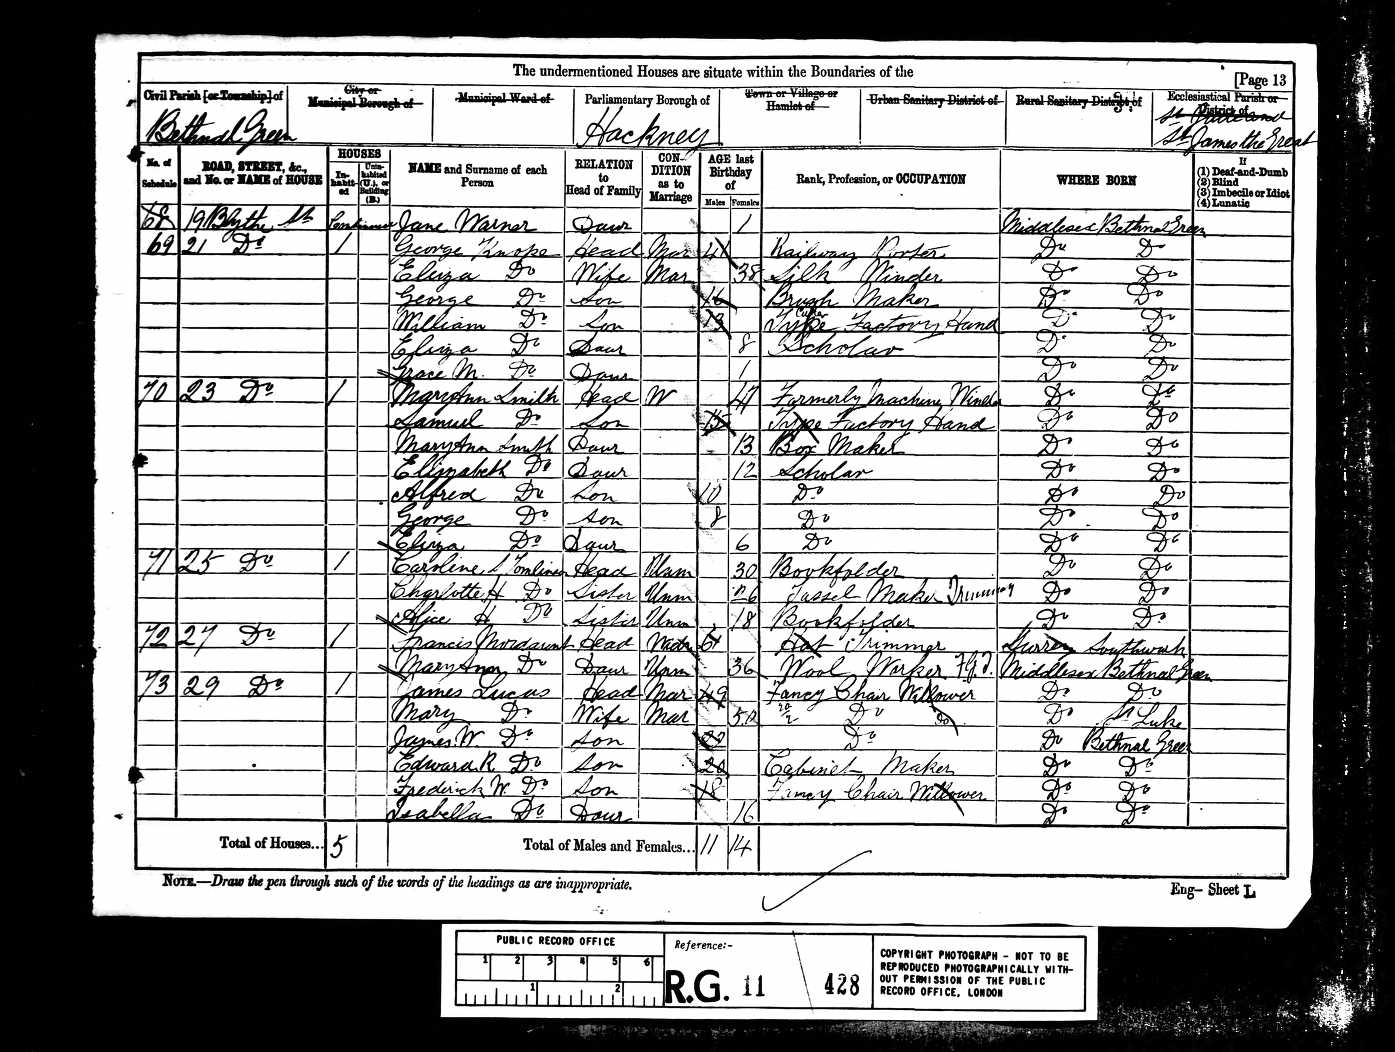 The undermentioned Houses are situate within the Boundaries of the
[Page 13
Civil Parish [or Township] of
City or Municipal Borough of
Municipal Ward of
Parliamentary Borough of
Town or Village or Hamlet of
Urban Sanitary District of
Rural Sanitary District of
Ecclesiastical Parish or District of
Bethnal Green
Hackney
St James the Great
No. of Schedule
ROAD, STREET, &c., and No. or NAME of HOUSE
HOUSES
In-habit-ed
Unin-habited (U.), or Building (B.)
NAME and Surname of each Person
RELATION to Head of Family
CON-DITION as to Marriage
AGE last Birthday of
Males
Females
Rank, Profession, or OCCUPATION
WHERE BORN
If
(1) Deaf-and-Dumb
(2) Blind
(3) Imbecile or Idiot
(4) Lunatic
68 19 Blythe St Continued Jane Warner Daur 1 Middlesex Bethnal Green
69 21 Do 1 George Knope Head Mar 41 Railway Porter Do Do
Eliza Do Wife Mar 38 Silk Winder Do Do
George Do Son 16 Brush Maker Do Do
William Do Son 13 Type Factory Hand Do Do
Eliza Do Daur 8 Scholar Do Do
Grace M. Do Daur 1 Do Do
70 23 Do 1 Mary Ann Smith Head W 47 Formerly Machine Winder Do Do
Samuel Do Son 15 Type Factory Hand Do Do
Mary Ann Smith Daur 13 Box Maker Do Do
Elizabeth Do Daur 12 Scholar Do Do
Alfred Do Son 10 Do Do Do
George Do Son 8 Do Do Do
Eliza Do Daur 6 Do Do Do
71 25 Do 1 Caroline S Tomlinson Head Unm 30 Bookfolder Do Do
Charlotte H Do Sister Unm 26 Tassel Maker Trimming Do Do
Alice H Do Sister Unm 18 Bookfolder Do Do
72 27 Do 1 Francis Mordaunt Head Widr 64 Hat Trimmer Surrey Southwark
Mary Ann Do Daur Unm 36 Wool Worker F.G.T. Middlesex Bethnal Green
73 29 Do 1 James Lucas Head Mar 49 Fancy Chair Willower Do Do
Mary Do Wife Mar 52 Do Do Do St Luke
James W. Do Son Do Do Bethnal Green
Edward R. Do Son 20 Cabinet Maker Do Do
Frederick W. Do Son 18 Fancy Chair Willower Do Do
Isabella Do Daur 16 Do Do
Total of Houses... 5
Total of Males and Females... 11 14
NOTE.—Draw the pen through such of the words of the headings as are inappropriate.
Eng– Sheet L
PUBLIC RECORD OFFICE
1 2 3 4 5 6
1 2
Reference:-
R.G. 11 / 428
COPYRIGHT PHOTOGRAPH - NOT TO BE
REPRODUCED PHOTOGRAPHICALLY WITH-
OUT PERMISSION OF THE PUBLIC
RECORD OFFICE, LONDON